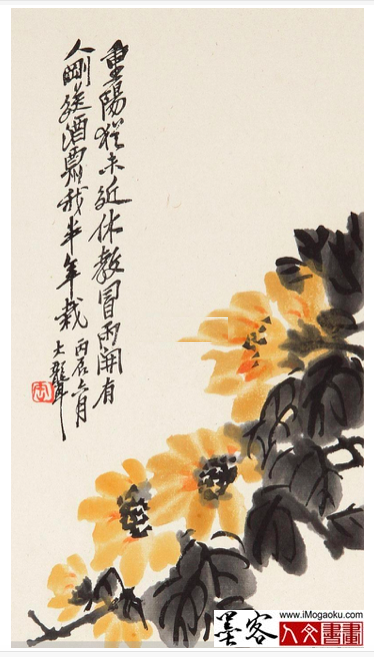 重陽猶未近休教冒雨開有
人剛送酒我半年栽
丙辰六月
大
www.iMogaoku.com
墨客 人文書畫